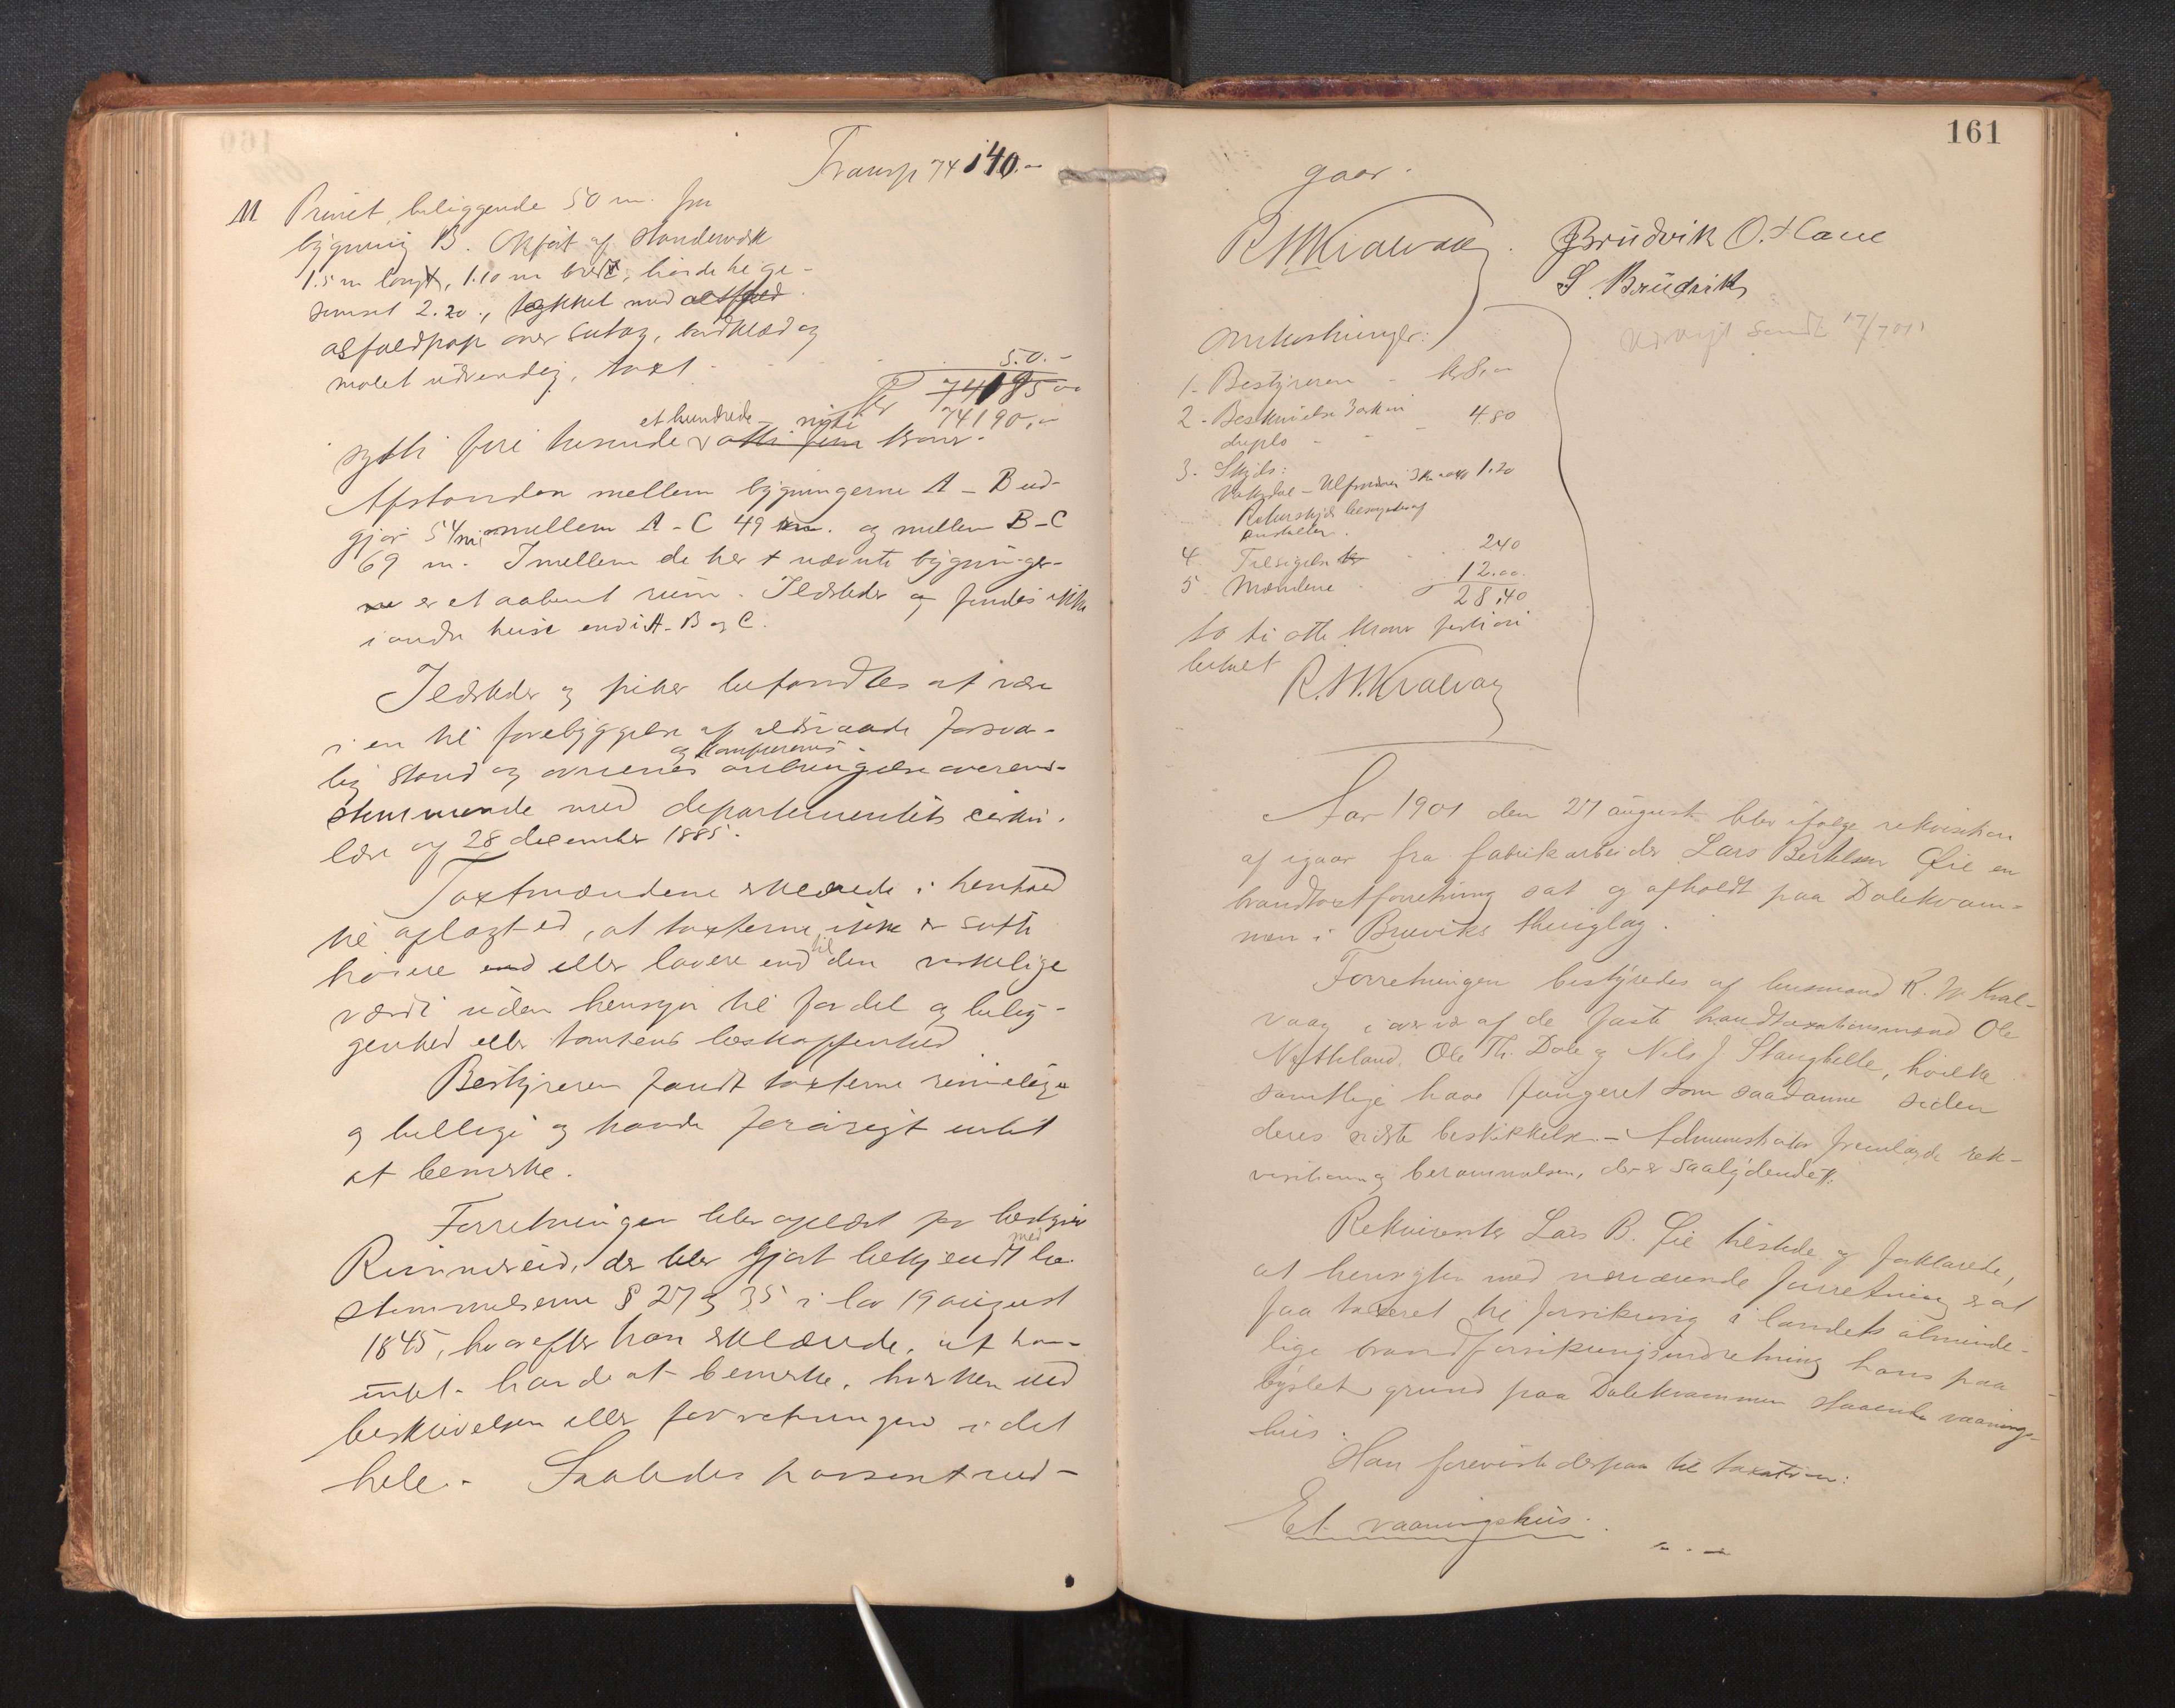 Transp 74 140.-
M Privet, beliggende 50 m. fra
bygning B. Opført af standerværk
1.5 m langt, 1.10 m bredt, høide til ge-
simset 2.20, tækket med
asfaldpap over sutag, bordklæd og
malet udvendig, taxt - 50.-
Kr 74185 00
74190,-
et hundrede nitti
sytti fire tusende & otti fem kroner.
Afstanden mellem bygningerne A - B ud-
gjør 54 m mellem A - C 49 m. og mellem B - C
69 m. Imellem de her nævnte bygninger-
ne er et aabent rum. Ildsteder og findes ikke
i andre huse end i A - B og C.
Ildsteder og piber befandtes at være
i en til forebyggelse af ildsvaade forsvar-
lig stand og ovnenes og komfurernes anbringelse overens-
stemmende med departementets cirku-
lære af 28 december 1885.
Taxtmændene erklærede i henhold
til aflagt ed, at taxterne ikke er satte
høiere end eller lavere end til den virkelige
værdi uden hensyn til fordel og belig-
genhed eller tomtens beskaffenhed
Bestyreren fandt taxterne rimelige
og billige og havde forøvrigt intet
at bemerke.
Forretningen blev oplæst for
der blev gjort bekjendt med be-
stemmelserne § 27 & 35 i lov 19 august
1845, hvorefter han erklærede, at han
intet havde at bemerke, hverken ved
beskrivelsen eller forretningen i det
hele. - Saaledes passeret ved-
161
gaar.
R. M. Kvalvaag. Brudvik O. Hane
S. Brudvik
Udskrift sendt 17/7 01
Omkostninger:
1 - Bestyreren - kr 8,00
2 - Beskrivelse 3 ark in
duplo - - - 4 80
3 - Skyds:
1.20
Returskyds
4 Tilsigelse 240
5 Mændene - 12.00
28,40
to ti otte kroner firti øre
betalt
R. M. Kvalvaag
Aar 1901 den 27 august blev ifølge rekvisition
af igaar fra fabrikarbeider Lars Bertelsen Øie en
brandtaxtforretning sat og afholdt paa Dalekvam-
men i Bruviks thinglag.
Forretningen bestyredes af lensmand R. M. Kval-
vaag i overvær af de faste brandtaxationsmænd Ole
Ole Th. Dale og Nils J. Stanghelle, hvilke
samtlige have fungeret som saadanne siden
deres sidste beskikkelse. - Administrator fremlagde rek-
visition og berammelsen, der er saalydende #.
Rekvirenten Lars B. Øie tilstede og forklarede,
at hensigten med nærværende forretning er at
faa taxeret til forsikring i landets alminde-
lige brandforsikringsindretning hans paa
bygslet grund paa Dalekvammen staaende vaanings-
hus.
Han foreviste derpaa til taxation:
Et vaaningshus.